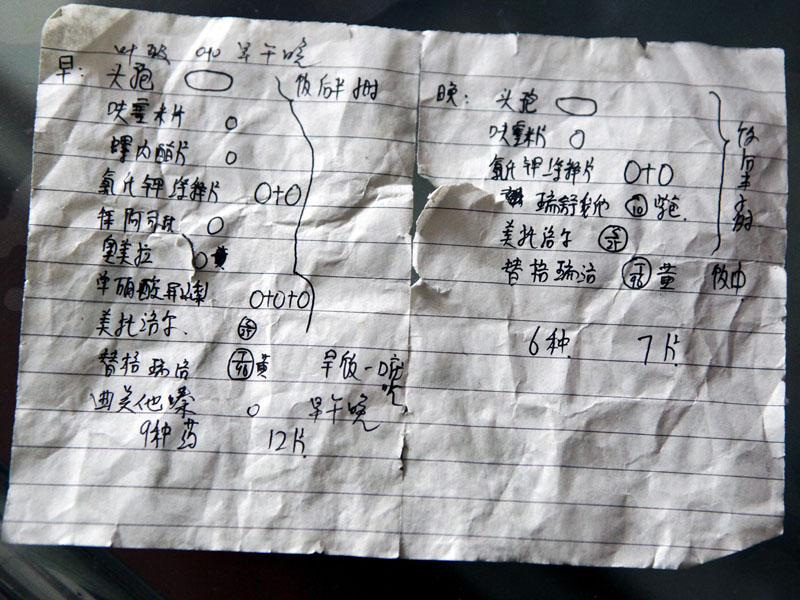 叶酸 0+0 早午晚
早: 头孢
饭后半小时
呋塞米片 0
螺内酯片 0
氯化钾缓释片 0+0
拜阿司 0
奥美拉 0 黄
单硝酸异山梨 0+0+0
美托洛尔
替格瑞洛 黄 早饭一
曲美他嗪 0 早午晚
9种药 12片
晚: 头孢
呋塞米片 0
氯化钾缓释片 0+0
瑞舒伐他 10 紫色
美托洛尔
替格瑞洛 黄 饭中
饭后半小时
6种 7片